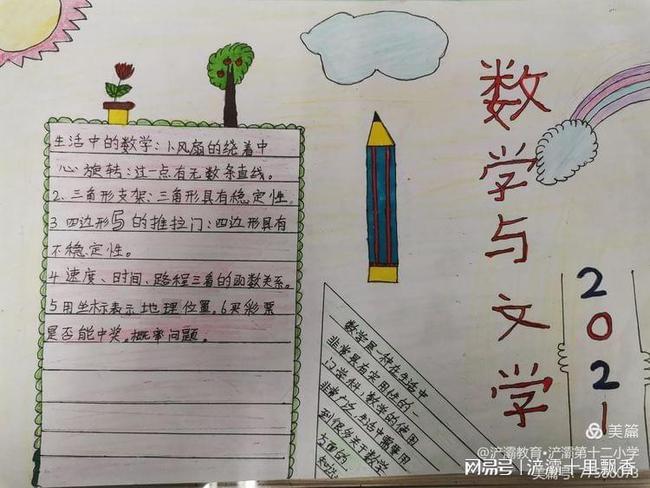 生活中的数学:1、风扇的绕着中
心旋转:过一点有无数条直线。
2、三角形支架:三角形具有稳定性。
3 四边形的推拉门:四边形具有
不稳定性。
4 速度、时间、路程三者的函数关系。
5 用坐标表示地理位置。6 买彩票
是否能中奖,概率问题。
数学是一种在生活中
非常具有实用性的一
门学科,数学的使用
非常广泛,生活中需要用
到很多关于数学
方面的
知识。
数学与文学
2021
美篇
@浐灞教育·浐灞第十二小学
网易号 | 浐灞十里飘香
美篇号:77580073